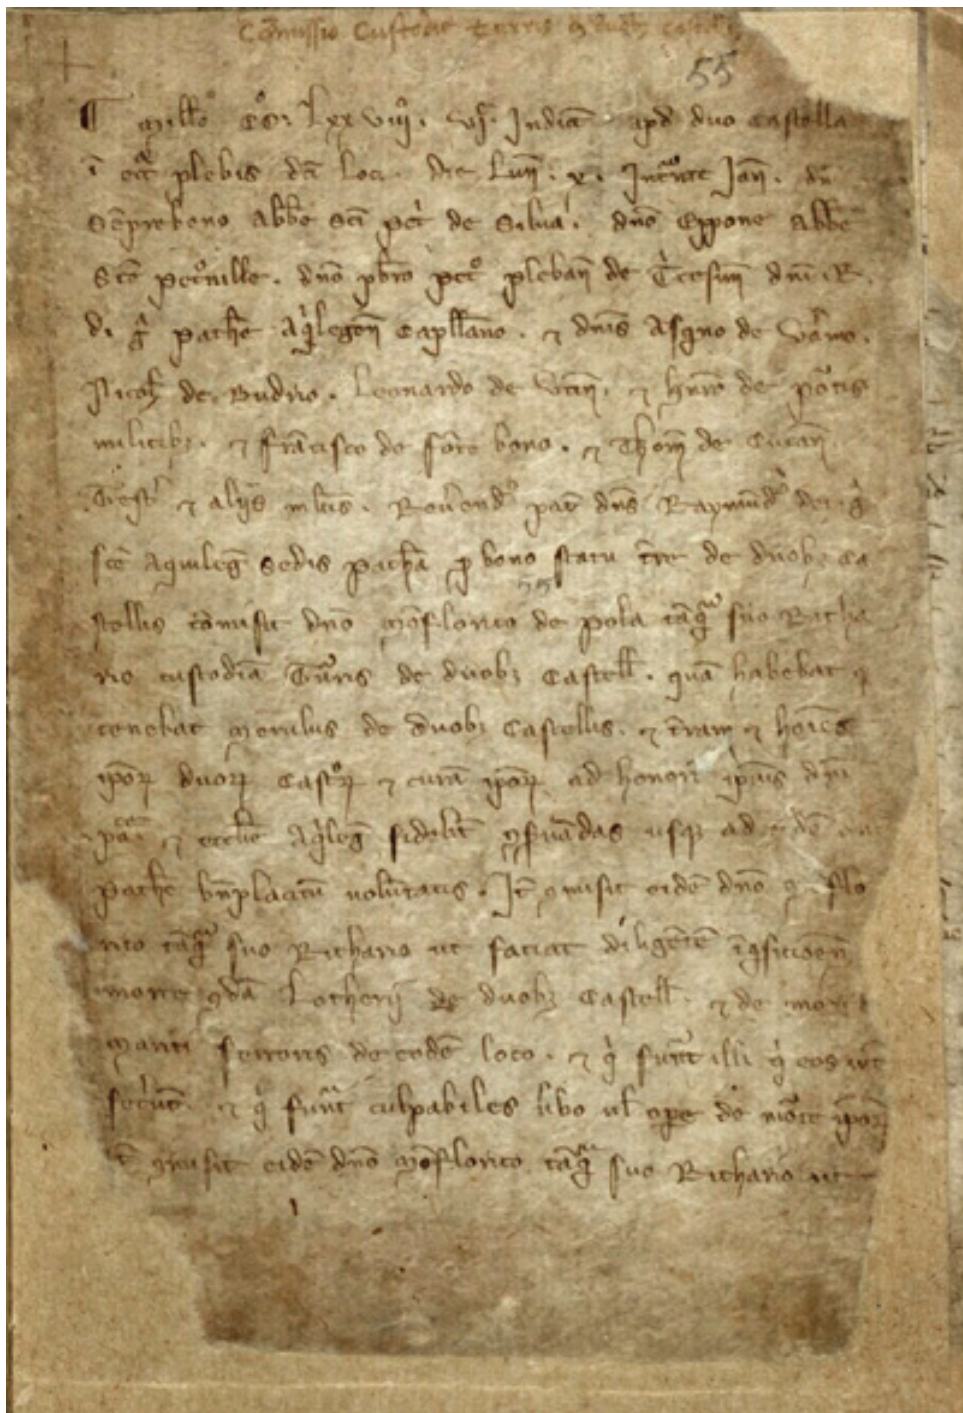 Co̅missio Custodie turris
55
Mill̅o CC. Lxxviij. vj. Indict̅ apd duo Castella
i̅ eccᵃ plebis dc̅i loci. die Lun̅. x. Int̅nte Jan̅. dn̅
Se̅prebono Abb̅e sc̅i pet̅ de Silua. dn̅o Eppone Abb̅e
Sc̅e pet̅nille. dn̅o pb̅ro pet̅ pleban̅ de dn̅i R.
d. gᵃ patͪe Aqͥlegen̅ Capll̅ano. ⁊ dn̅is Asqͥno de Vaͬmo.
Nicol̅ de Budrio. Leonardo de Vtin̅. ⁊ hn̅rico de poͬtis
militibꝫ. ⁊ fra̅cisco de foͬte bono. ⁊ Thom̅ de Cucan̅
⁊ aliis ml̅tis. Reu̅endꝰ pat̅ dn̅s Raymu̅dꝰ dei gᵃ
sc̅e Aquileg̅ Sedis patͪa ꝑ bono statu t̅re de duobꝫ Ca
55
stellis co̅misit dn̅o Mo̅florito de pola ta̅qᵃ suo Richa
rio custodia̅ Tu̅ris de duobꝫ Castell̅. qua̅ habebat ⁊
tenebat Menulus de duobꝫ Castellis. ⁊ t̅ram ⁊ hoi̅es
ip̅oꝝ duoꝝ Castꝝ ⁊ cura̅ ip̅oꝝ ad honore̅ ip̅ius dn̅i
pat̅ ⁊ eccl̅ie Aqͥleg̅ fidelit̅ ꝯẜua̅das usqꝫ ad
patͪe bn̅placitu̅ uolu̅tatis. It̅ ꝯmisit eide̅ dn̅o Mo̅flo
rito ta̅qᵃ suo Richario ut faciat dilige̅te̅ i̅qͥsitio̅e̅
morte ꝯda̅ Lotherij de duobꝫ Castell̅. ⁊ de morte
Marti̅ ferroris de eode̅ loco. ⁊ qͥ fueru̅t illi qͥ eos i̅t̅
fec̅ut̅. ⁊ qͥ fueru̅t culpabiles u̅bo ul̅ ope̅ de moͬte ip̅oꝝ
t̅ ꝯmisit eide̅ dn̅o Mo̅florito ta̅qᵃ suo Richario ut